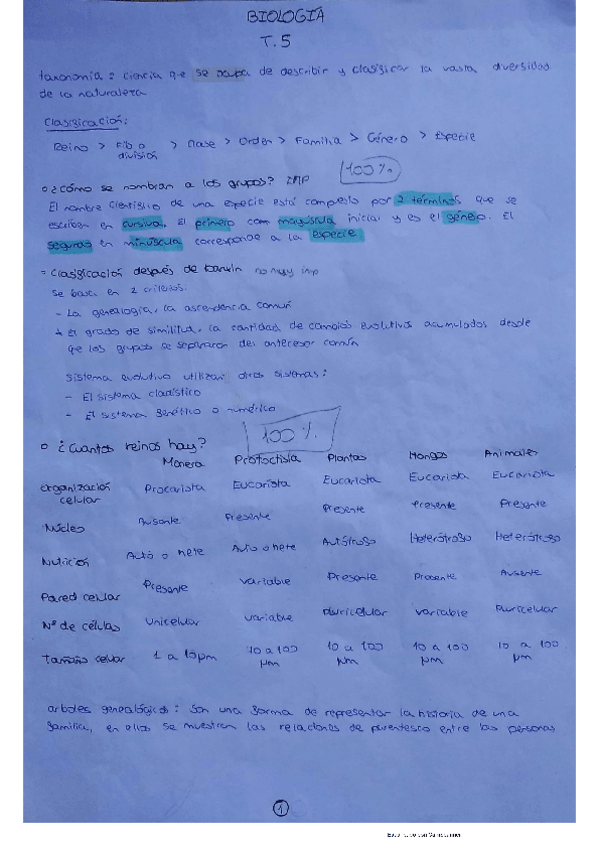 BIOLOGÍA
T.5
taxonomía: ciencia que se ocupa de describir y clasificar la vasta diversidad
de la naturaleza
Clasificación:
Reino > Filo o división > Clase > Orden > Familia > Género > Especie
100%
¿Cómo se nombran a los grupos? IMP
El nombre científico de una especie está compuesto por 2 términos que se
escriben en cursiva. El primero con mayúscula inicial y es el género. El
segundo en minúscula corresponde a la especie
= Clasificación después de Darwin no muy imp
Se basa en 2 criterios:
- La genealogía, la ascendencia común
+ El grado de similitud, la cantidad de cambios evolutivos acumulados desde
que los grupos se separaron del antecesor común
Sistema evolutivo utilizan otros sistemas:
- El sistema cladístico
- El sistema fenético o numérico
100%
¿Cuantos reinos hay?
Monera Protoctista Plantas Hongos Animales
Organización celular Procariota Eucariota Eucariota Eucariota Eucariota
Núcleo Ausente Presente Presente Presente Presente
Nutrición Auto o hete Auto o hete Autótrofo Heterótrofo Heterótrofo
Pared celular Presente variable Presente Presente Ausente
Nº de células Unicelular variable Pluricelular variable Pluricelular
Tamaño celular 1 a 10 μm 10 a 100 μm 10 a 100 μm 10 a 100 μm 10 a 100 μm
arboles genealógicos: Son una forma de representar la historia de una
familia, en ellos se muestran las relaciones de parentesco entre las personas
1